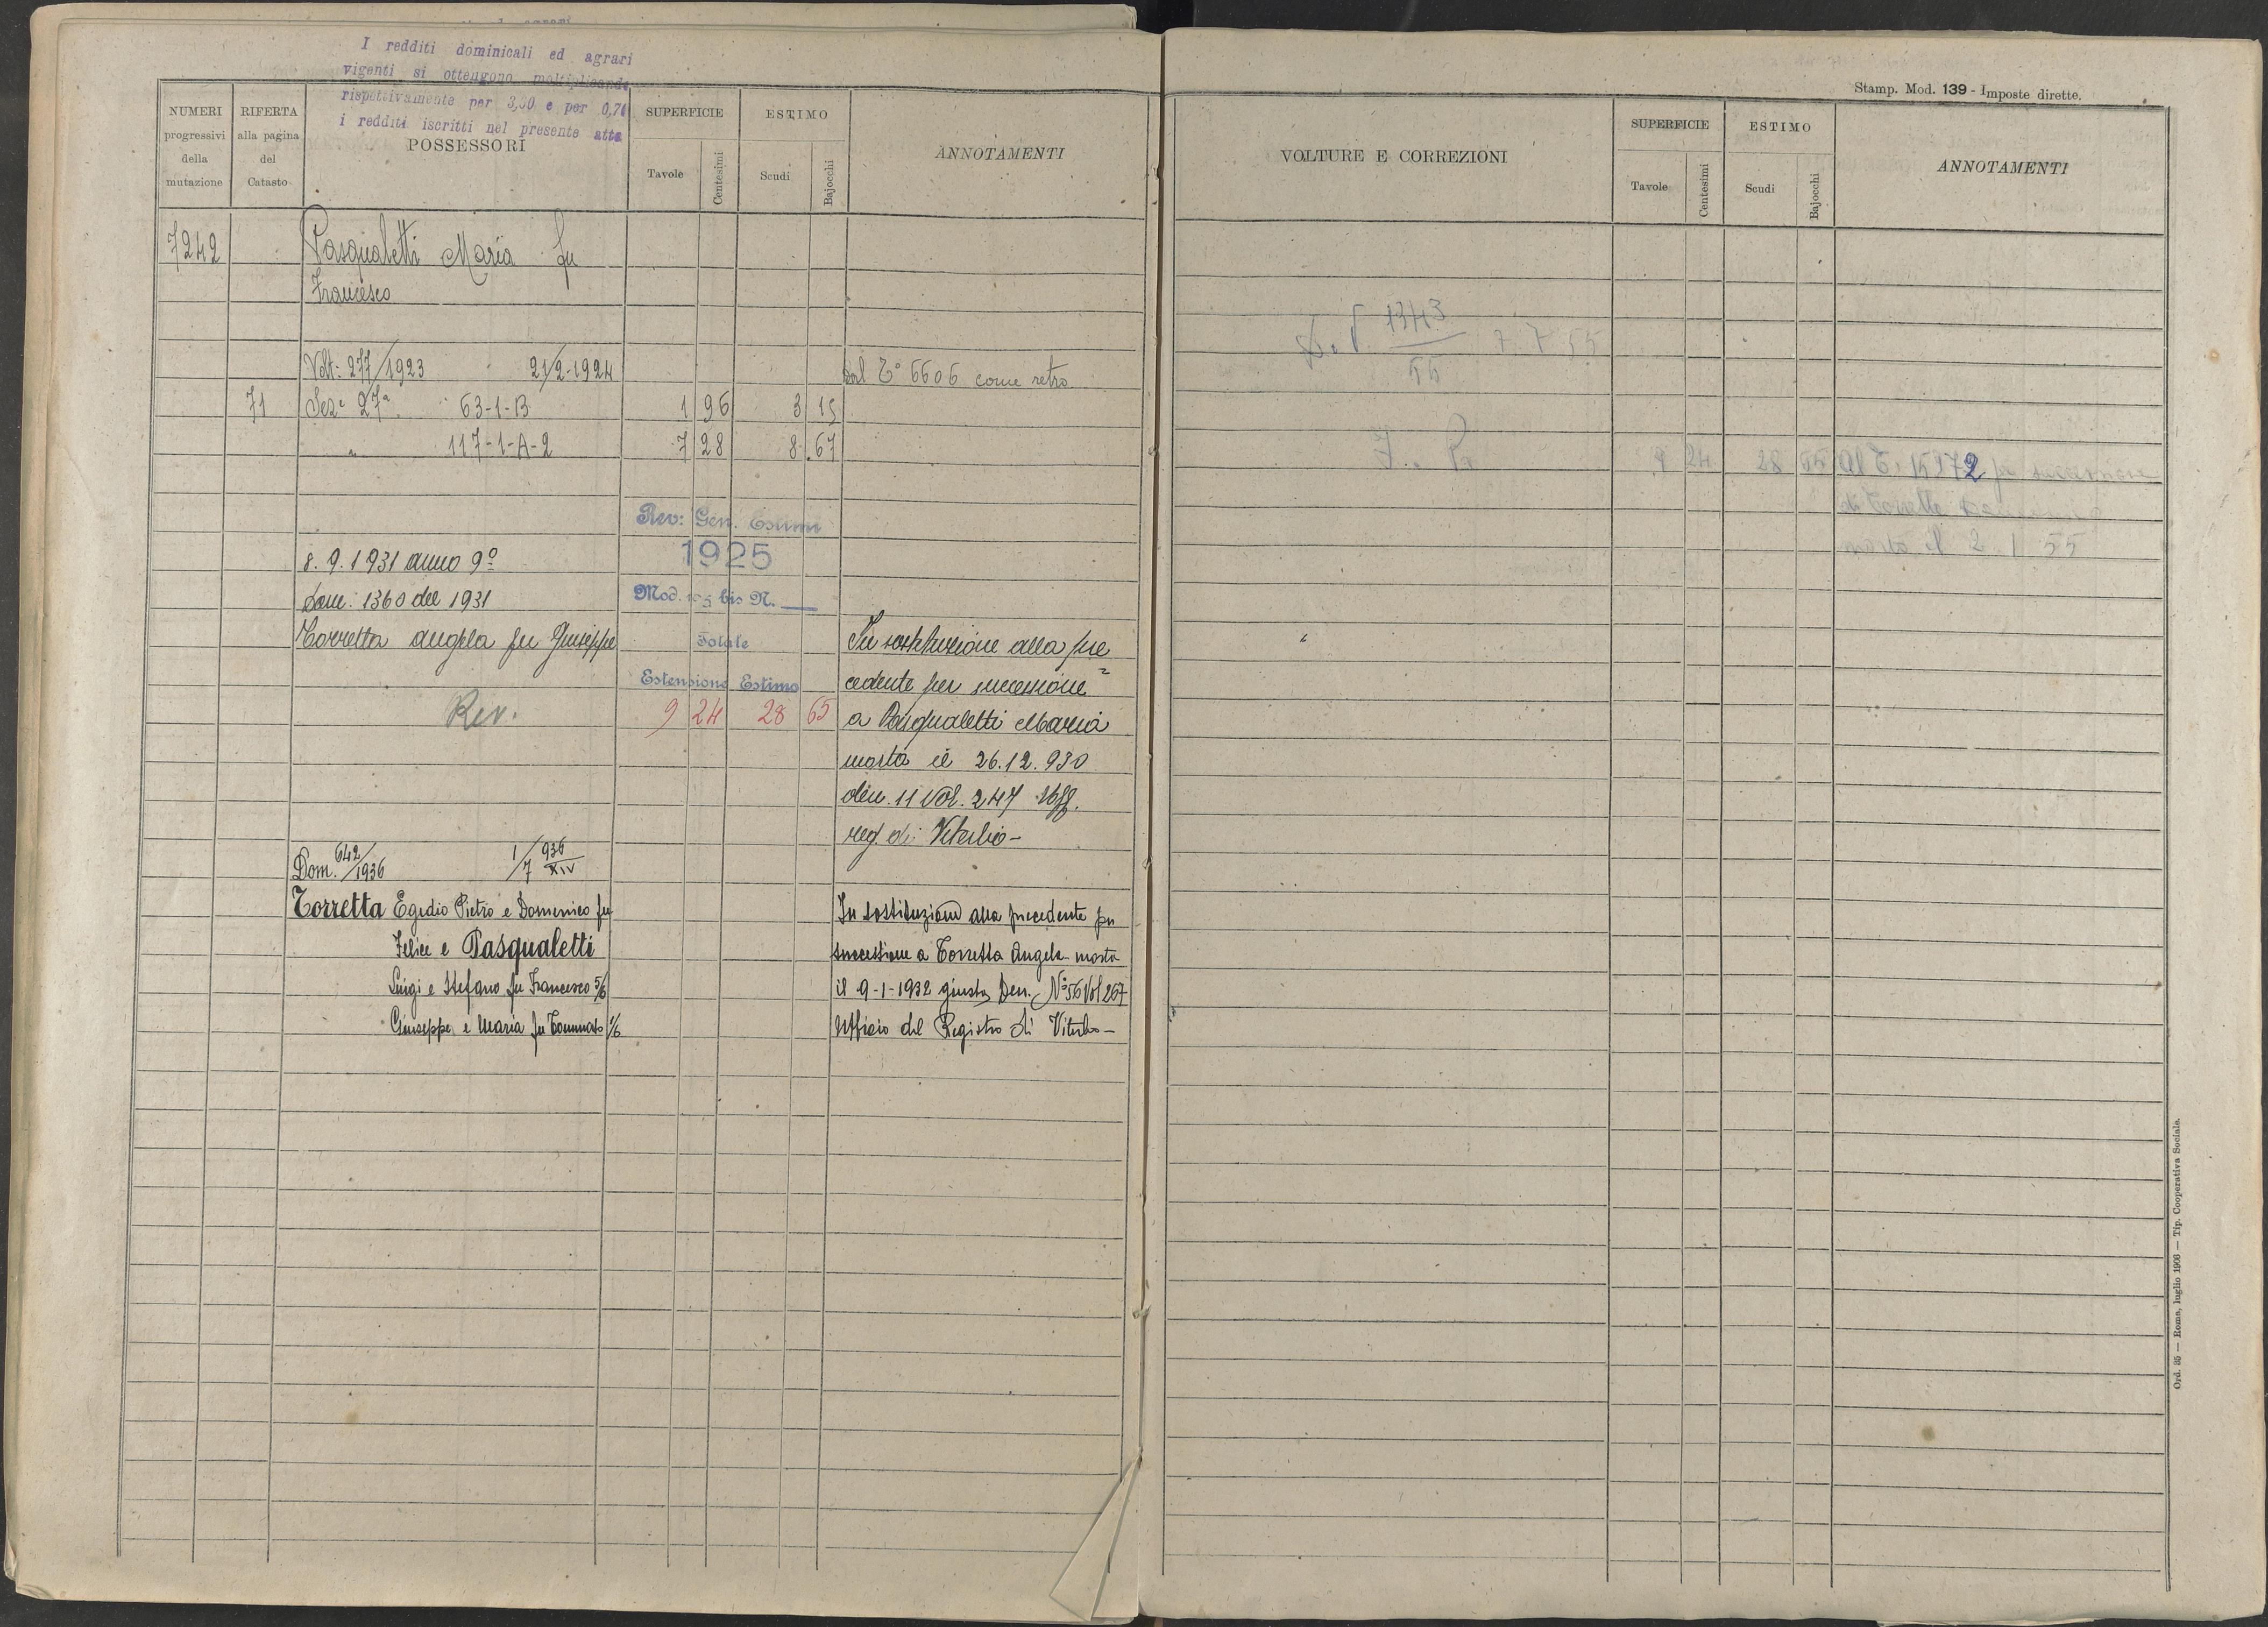 I redditi dominicali ed agrari
vigenti si ottengono moltiplicando
rispettivamente per 3,00 e per 0,70
i redditi iscritti nel presente atto
NUMERI progressivi della mutazione
RIFERTA alla pagina del Catasto
POSSESSORI
SUPERFICIE
Tavole Centesimi
ESTIMO
Scudi Bajocchi
ANNOTAMENTI
7242 Pasqualetti Maria fu
Francesco
Volt: 277/1923 21/2-1924 dal T° 6606 come retro
71 Sez.e 27a 63-1-B 1 96 3 15
" 117-1-A-2 7 28 8.67
Rev: Gen. Estimi
1925
8.9.1931 anno 9º
Dom: 1360 del 1931 Mod. 105 bis N.
Torretta Angela fu Giuseppe Totale In sostituzione alla pre
Estensione Estimo cedente per successione
Rev. 9 24 28 65 a Pasqualetti Maria
morta il 26.12.930
den. 11 Vol. 247 Uff.
reg. di Viterbo-
Dom. 642/1936 1/7 936 XIV
Torretta Egidio Pietro e Domenico fu In sostituzione alla precedente per
Felice e Pasqualetti successione a Torretta Angela morta
Luigi e Stefano fu Francesco 5/6 il 9-1-1932 giusta Den. N° 56 Vol 267
Giuseppe e Maria fu Tommaso 1/6 Ufficio del Registro di Viterbo-
Stamp. Mod. 139 - Imposte dirette.
VOLTURE E CORREZIONI
SUPERFICIE
Tavole Centesimi
ESTIMO
Scudi Bajocchi
ANNOTAMENTI
1343
55 7 7 55
9 24 28 65 Al T. 15972 per successione
di Torretta Domenico
morto il 2 1 55
Ord. 35 — Roma, luglio 1906 — Tip. Cooperativa Sociale.